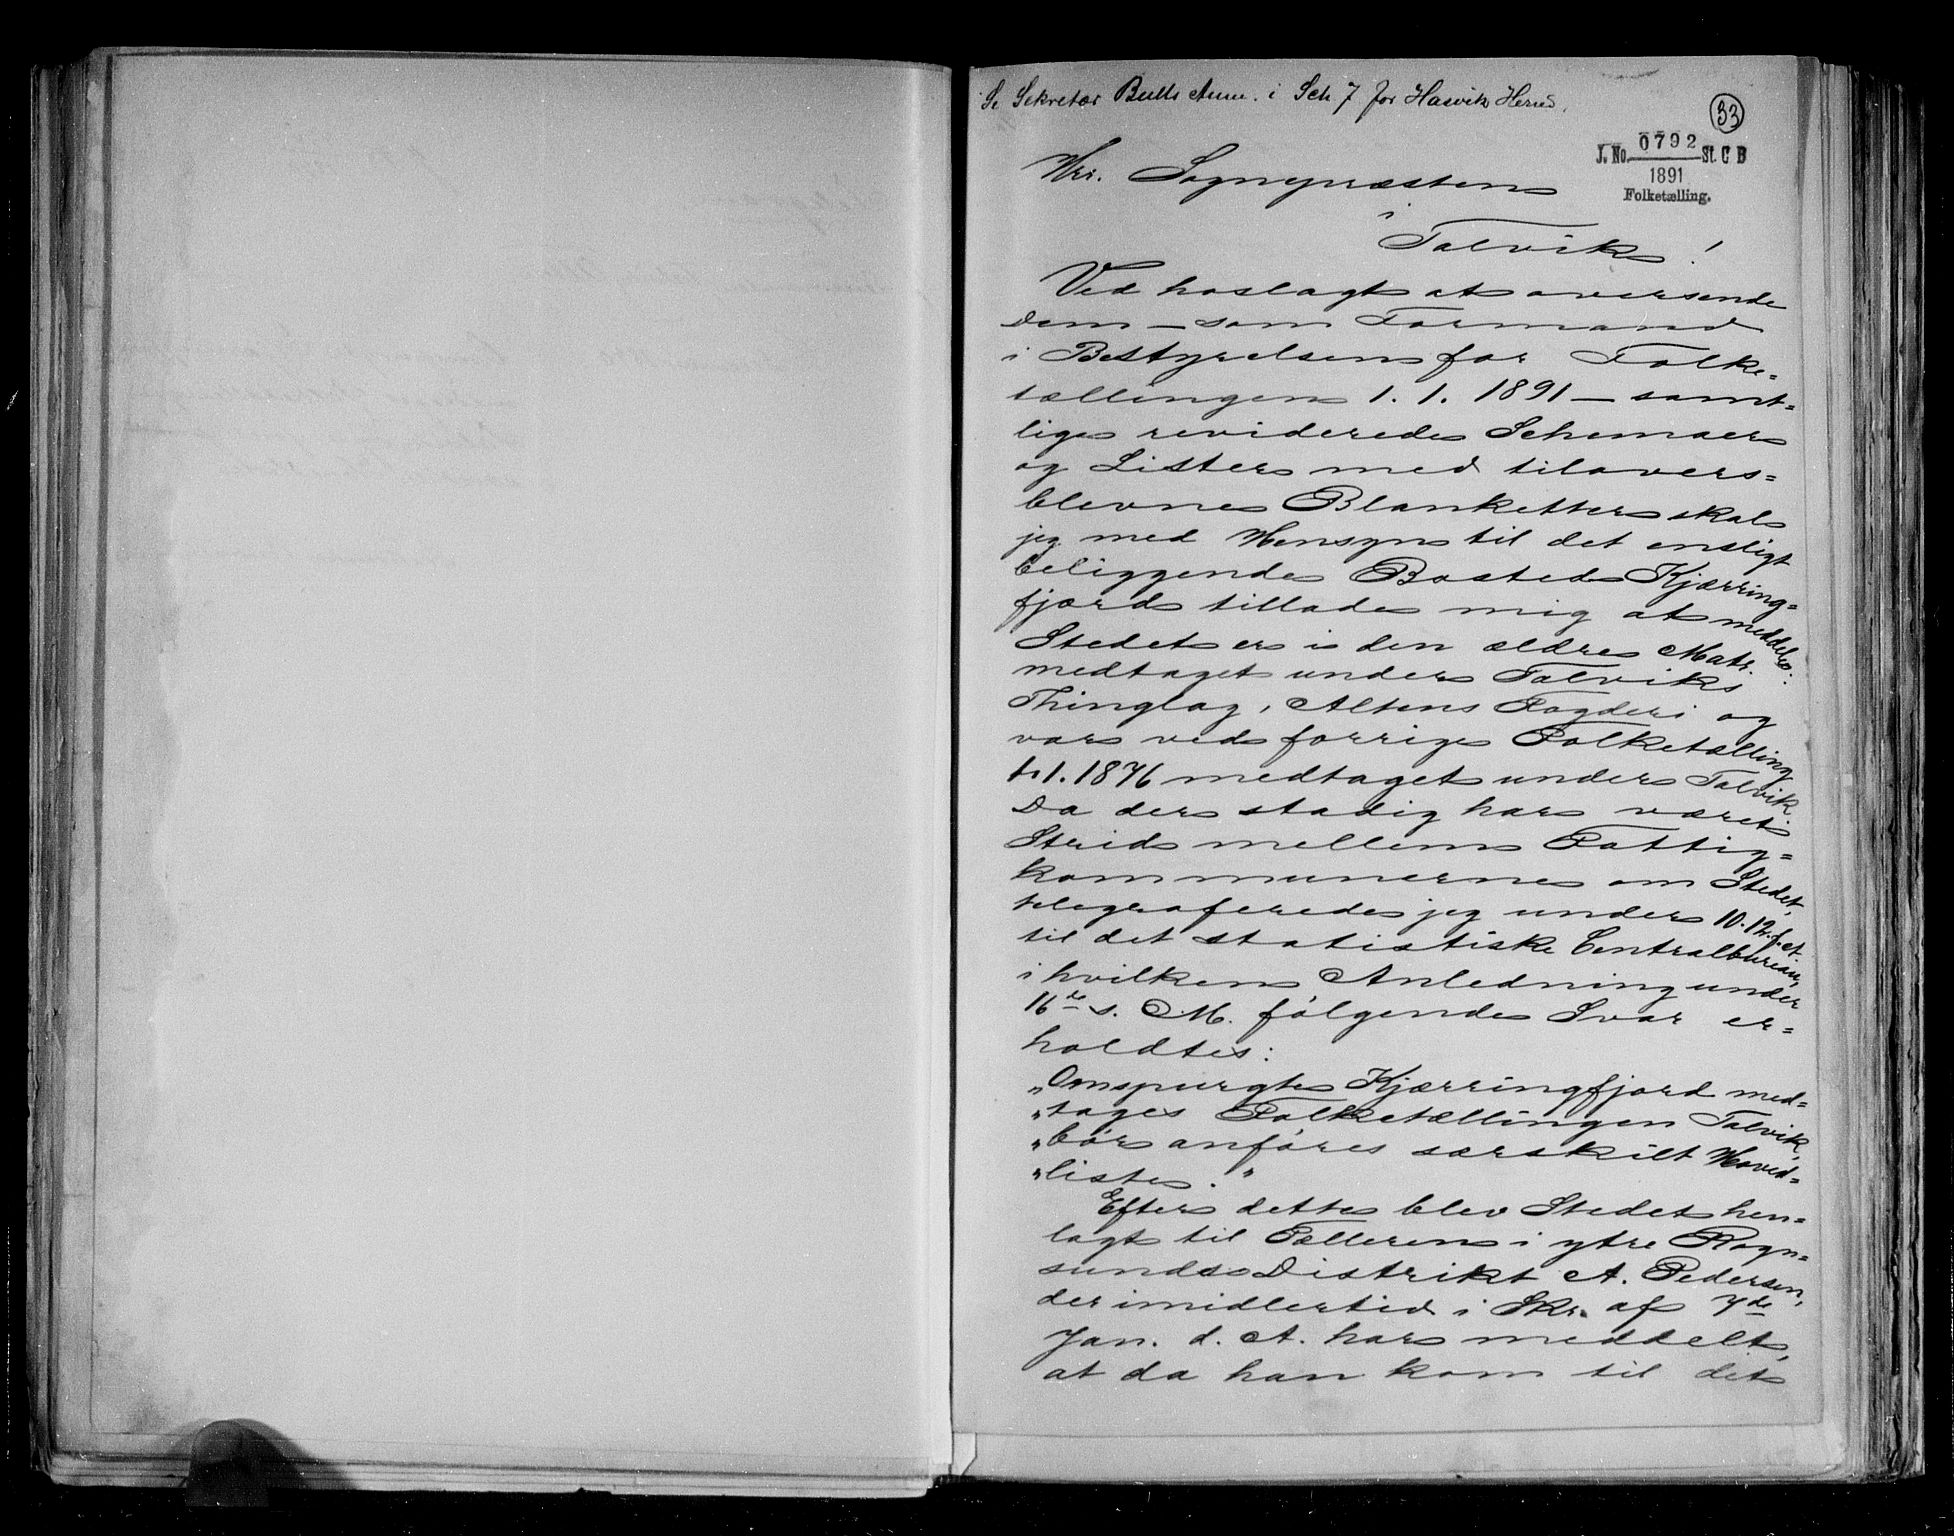 Se Sekretær Bulls Anm. i Sch 7 for Hasvik Herred.
33
J. No. 0792 St. C B
1891
Folketælling.
Hrr. Sognepræsten
i
Talvik!
Ved hoslagt at oversende
Dem – som Formand
i Bestyrelsen for Folke=
tællingen 1. 1. 1891 – samt=
lige reviderede Schemaer
og Lister med tilovers=
blevne Blanketter skal
jeg med Hensyn til det ensligt
beliggende Bosted Kjærring=
fjord tillade mig at meddele:
Stedet er i den ældre Matr.
medtaget under Talviks
Thinglag, Altens Fogderi og
var ved forrige Folketælling
1. 1. 1876 medtaget under Talvik.
Da der stadig har været
Strid mellem Fattig=
kommunerne om Stedet,
telegraferede jeg under 10. 12. f. A.
til det statistiske Centralbureau,
i hvilken Anledning under
16de s. M. følgende Svar er=
holdtes:
"Omspurgte Kjærringfjord med=
"tages Folketællingen Talvik,
"bør anføres særskilt Hoved=
"liste."
Efter dette blev Stedet hen=
lagt til Tælleren i ytre Rogn=
sunds Distrikt A. Pedersen,
der imidlertid i Skr. af 7de
Jan. d. A. har meddelt,
at da han kom til det